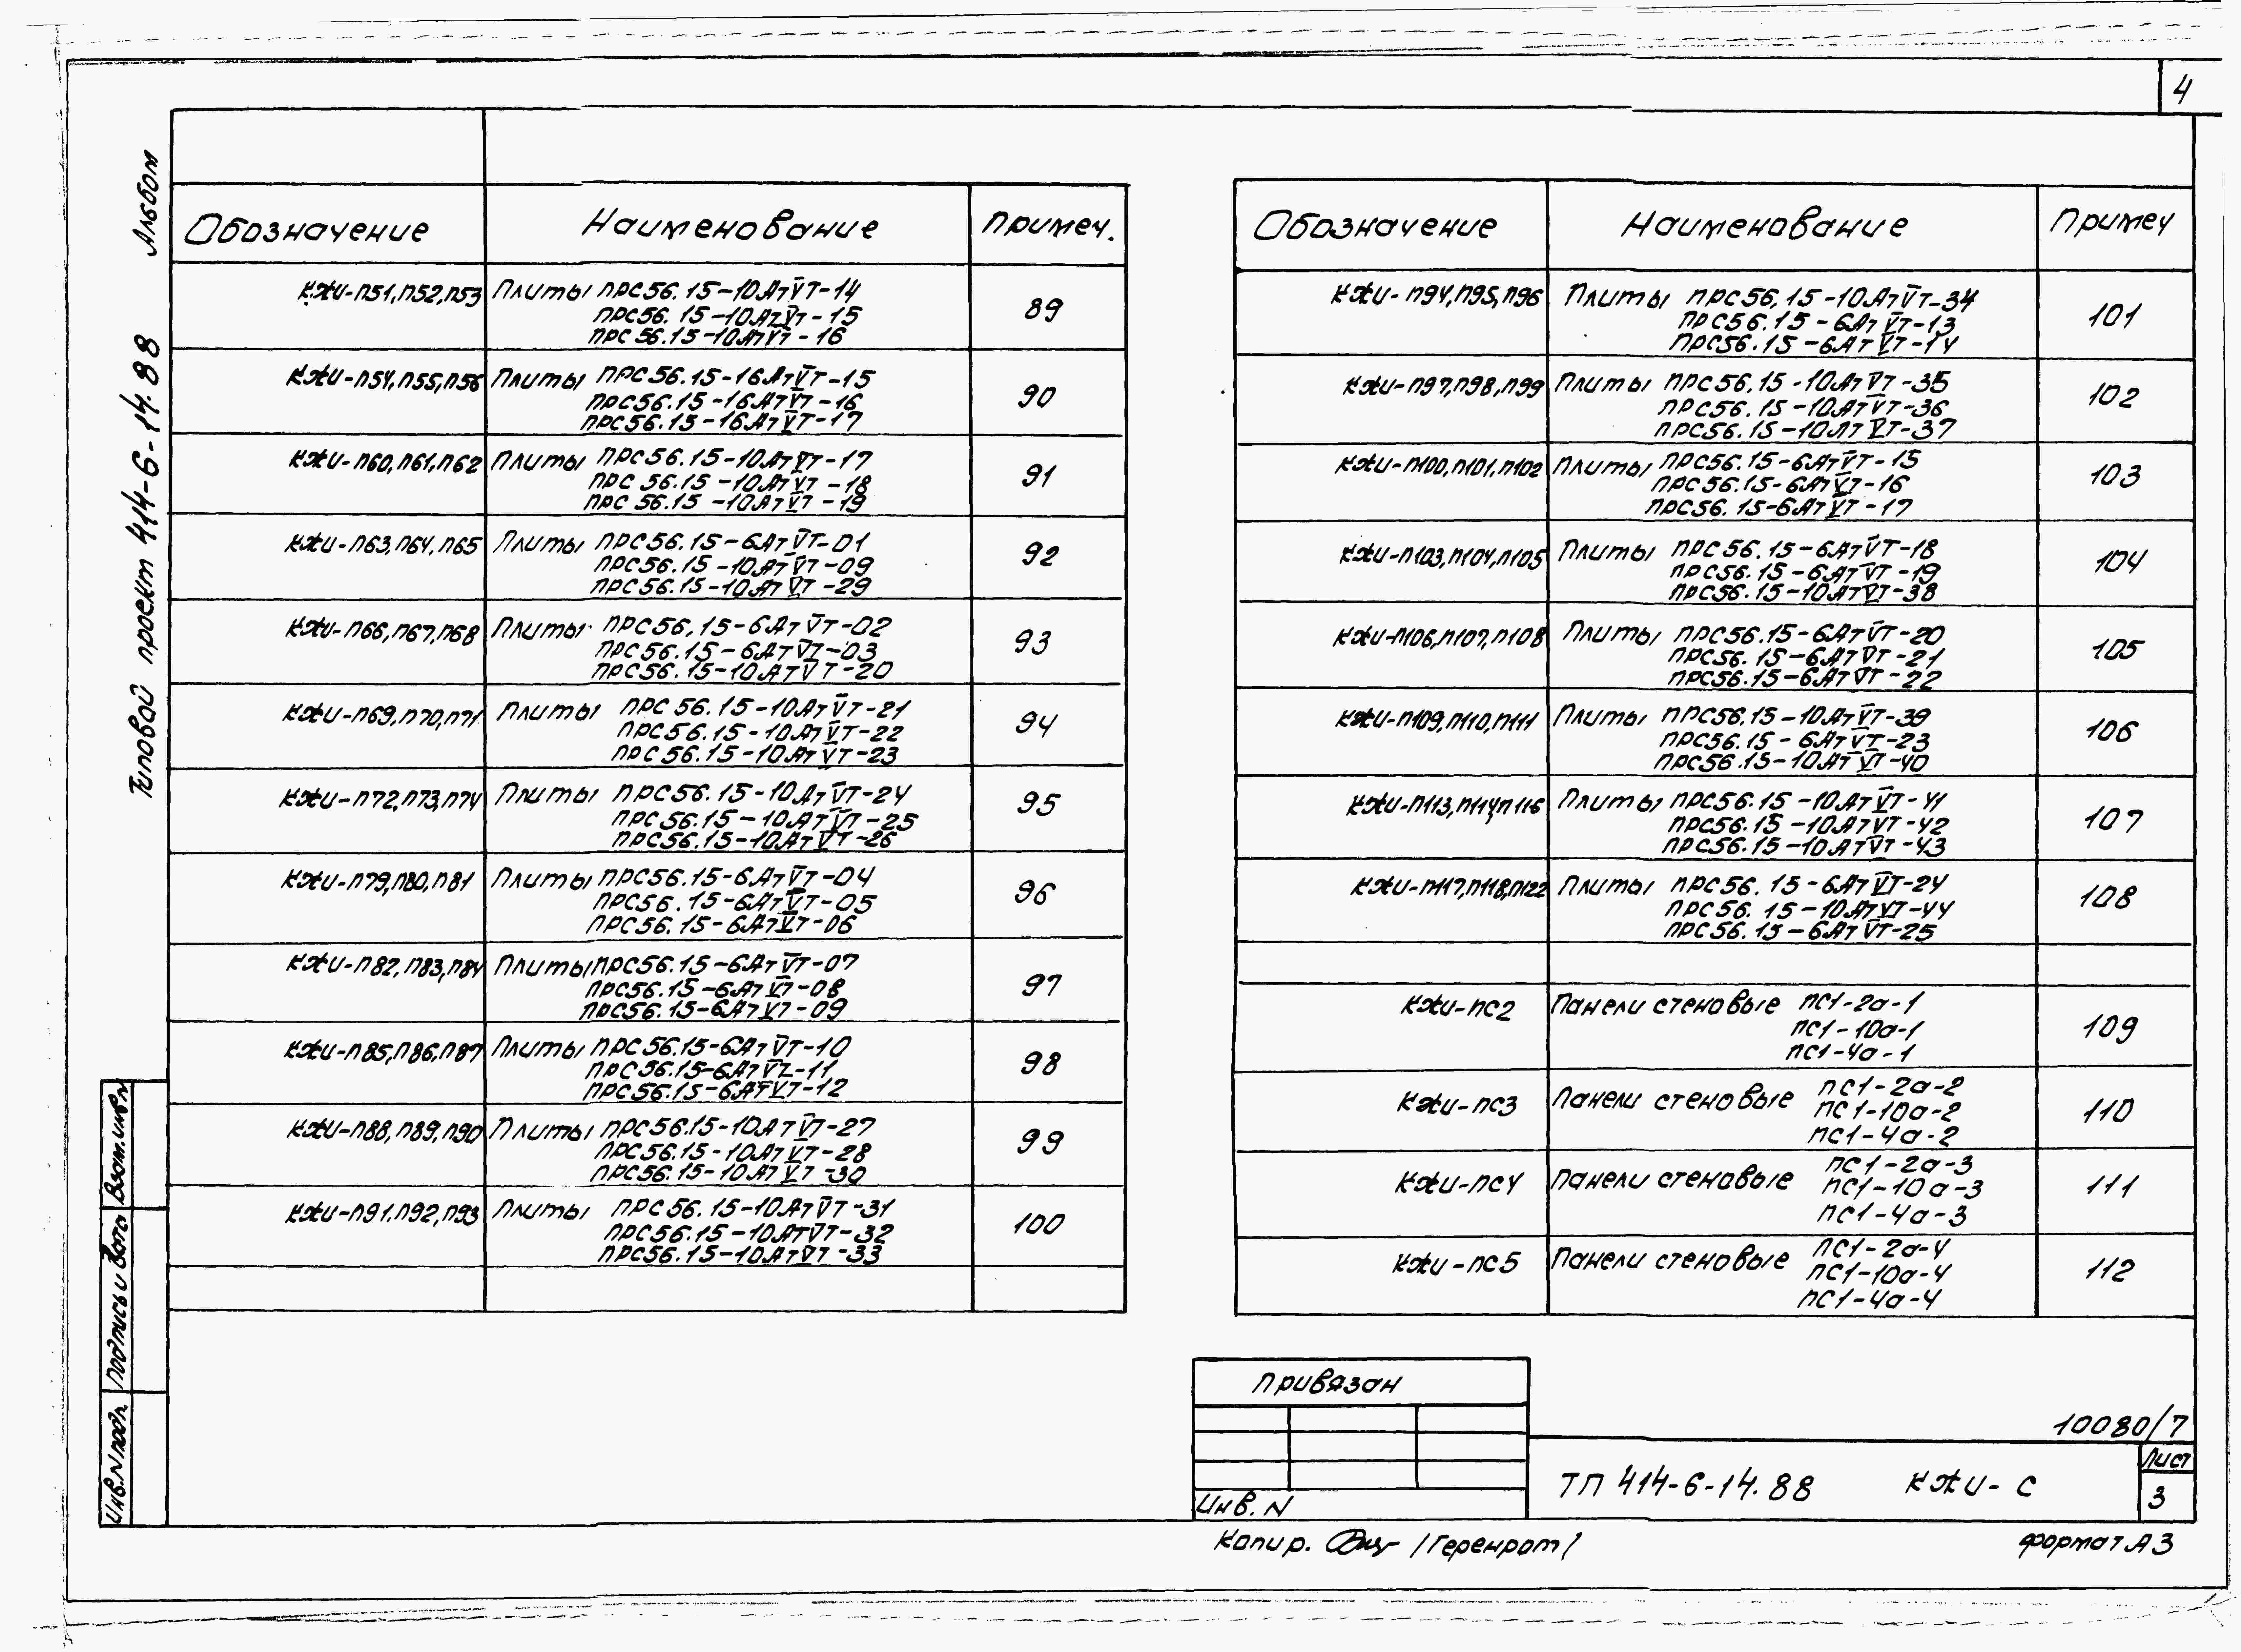 4
Альбом
Типовой проект 414-6-14.88
Обозначение Наименование Примеч.
КЖИ-П51,П52,П53 Плиты ПРС56.15-10АтVТ-14 89
ПРС56.15-10АтVТ-15
ПРС56.15-10АтVТ-16
КЖИ-П54,П55,П56 Плиты ПРС56.15-16АтVТ-15 90
ПРС56.15-16АтVТ-16
ПРС56.15-16АтVТ-17
КЖИ-П60,П61,П62 Плиты ПРС56.15-10АтVТ-17 91
ПРС56.15-10АтVТ-18
ПРС56.15-10АтVТ-19
КЖИ-П63,П64,П65 Плиты ПРС56.15-6АтVТ-01 92
ПРС56.15-10АтVТ-09
ПРС56.15-10АтVТ-29
КЖИ-П66,П67,П68 Плиты ПРС56.15-6АтVТ-02 93
ПРС56.15-6АтVТ-03
ПРС56.15-10АтVТ-20
КЖИ-П69,П70,П71 Плиты ПРС56.15-10АтVТ-21 94
ПРС56.15-10АтVТ-22
ПРС56.15-10АтVТ-23
КЖИ-П72,П73,П74 Плиты ПРС56.15-10АтVТ-24 95
ПРС56.15-10АтVТ-25
ПРС56.15-10АтVТ-26
КЖИ-П79,П80,П81 Плиты ПРС56.15-6АтVТ-04 96
ПРС56.15-6АтVТ-05
ПРС56.15-6АтVТ-06
КЖИ-П82,П83,П84 Плиты ПРС56.15-6АтVТ-07 97
ПРС56.15-6АтVТ-08
ПРС56.15-6АтVТ-09
КЖИ-П85,П86,П87 Плиты ПРС56.15-6АтVТ-10 98
ПРС56.15-6АтVТ-11
ПРС56.15-6АтVТ-12
КЖИ-П88,П89,П90 Плиты ПРС56.15-10АтVТ-27 99
ПРС56.15-10АтVТ-28
ПРС56.15-10АтVТ-30
КЖИ-П91,П92,П93 Плиты ПРС56.15-10АтVТ-31 100
ПРС56.15-10АтVТ-32
ПРС56.15-10АтVТ-33
Обозначение Наименование Примеч
КЖИ-П94,П95,П96 Плиты ПРС56.15-10АтVТ-34 101
ПРС56.15-6АтVТ-13
ПРС56.15-6АтVТ-14
КЖИ-П97,П98,П99 Плиты ПРС56.15-10АтVТ-35 102
ПРС56.15-10АтVТ-36
ПРС56.15-10АтVТ-37
КЖИ-П100,П101,П102 Плиты ПРС56.15-6АтVТ-15 103
ПРС56.15-6АтVТ-16
ПРС56.15-6АтVТ-17
КЖИ-П103,П104,П105 Плиты ПРС56.15-6АтVТ-18 104
ПРС56.15-6АтVТ-19
ПРС56.15-10АтVТ-38
КЖИ-П106,П107,П108 Плиты ПРС56.15-6АтVТ-20 105
ПРС56.15-6АтVТ-21
ПРС56.15-6АтVТ-22
КЖИ-П109,П110,П111 Плиты ПРС56.15-10АтVТ-39 106
ПРС56.15-6АтVТ-23
ПРС56.15-10АтVТ-40
КЖИ-П113,П114,П116 Плиты ПРС56.15-10АтVТ-41 107
ПРС56.15-10АтVТ-42
ПРС56.15-10АтVТ-43
КЖИ-П117,П118,П122 Плиты ПРС56.15-6АтVТ-24 108
ПРС56.15-10АтVТ-44
ПРС56.15-6АтVТ-25
КЖИ-ПС2 Панели стеновые ПС1-2а-1 109
ПС1-10а-1
ПС1-4а-1
КЖИ-ПС3 Панели стеновые ПС1-2а-2 110
ПС1-10а-2
ПС1-4а-2
КЖИ-ПС4 Панели стеновые ПС1-2а-3 111
ПС1-10а-3
ПС1-4а-3
КЖИ-ПС5 Панели стеновые ПС1-2а-4 112
ПС1-10а-4
ПС1-4а-4
Взам.инв.N
Подпись и дата
Инв.N подл.
Привязан
Инв. N
10080/7
ТП 414-6-14.88 КЖИ-С
Лист
3
Копир. /Геренрот/
формат А3